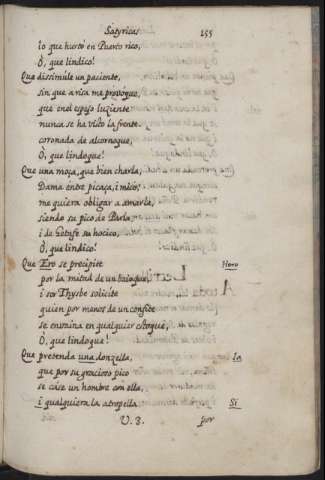 Satyricas 155
lo que hurtó en Puerto rico,
O, que lindico!
Que dissimule un paciente,
sin que a risa me provoque,
que en el espejo luziente
nunca se ha visto la frente
coronada de alcornoque,
O, que lindoque!
Que una moça, que bien charla,
Dama entre picaça, i mico,
me quiera obligar a amarla,
siendo su pico de Parla,
i de Getafe su hocico,
O, que lindico!
Que Ero se precipite Hero
por la mitad de un
i ser Thysbe solicite
quien por menos de un confite
se enzuina en qualquier
O, que lindoque!
Que pretenda una donzella, la
que por su gracioso pico
se case un hombre con ella,
i qualquiera la atropella Si
V. 3. por